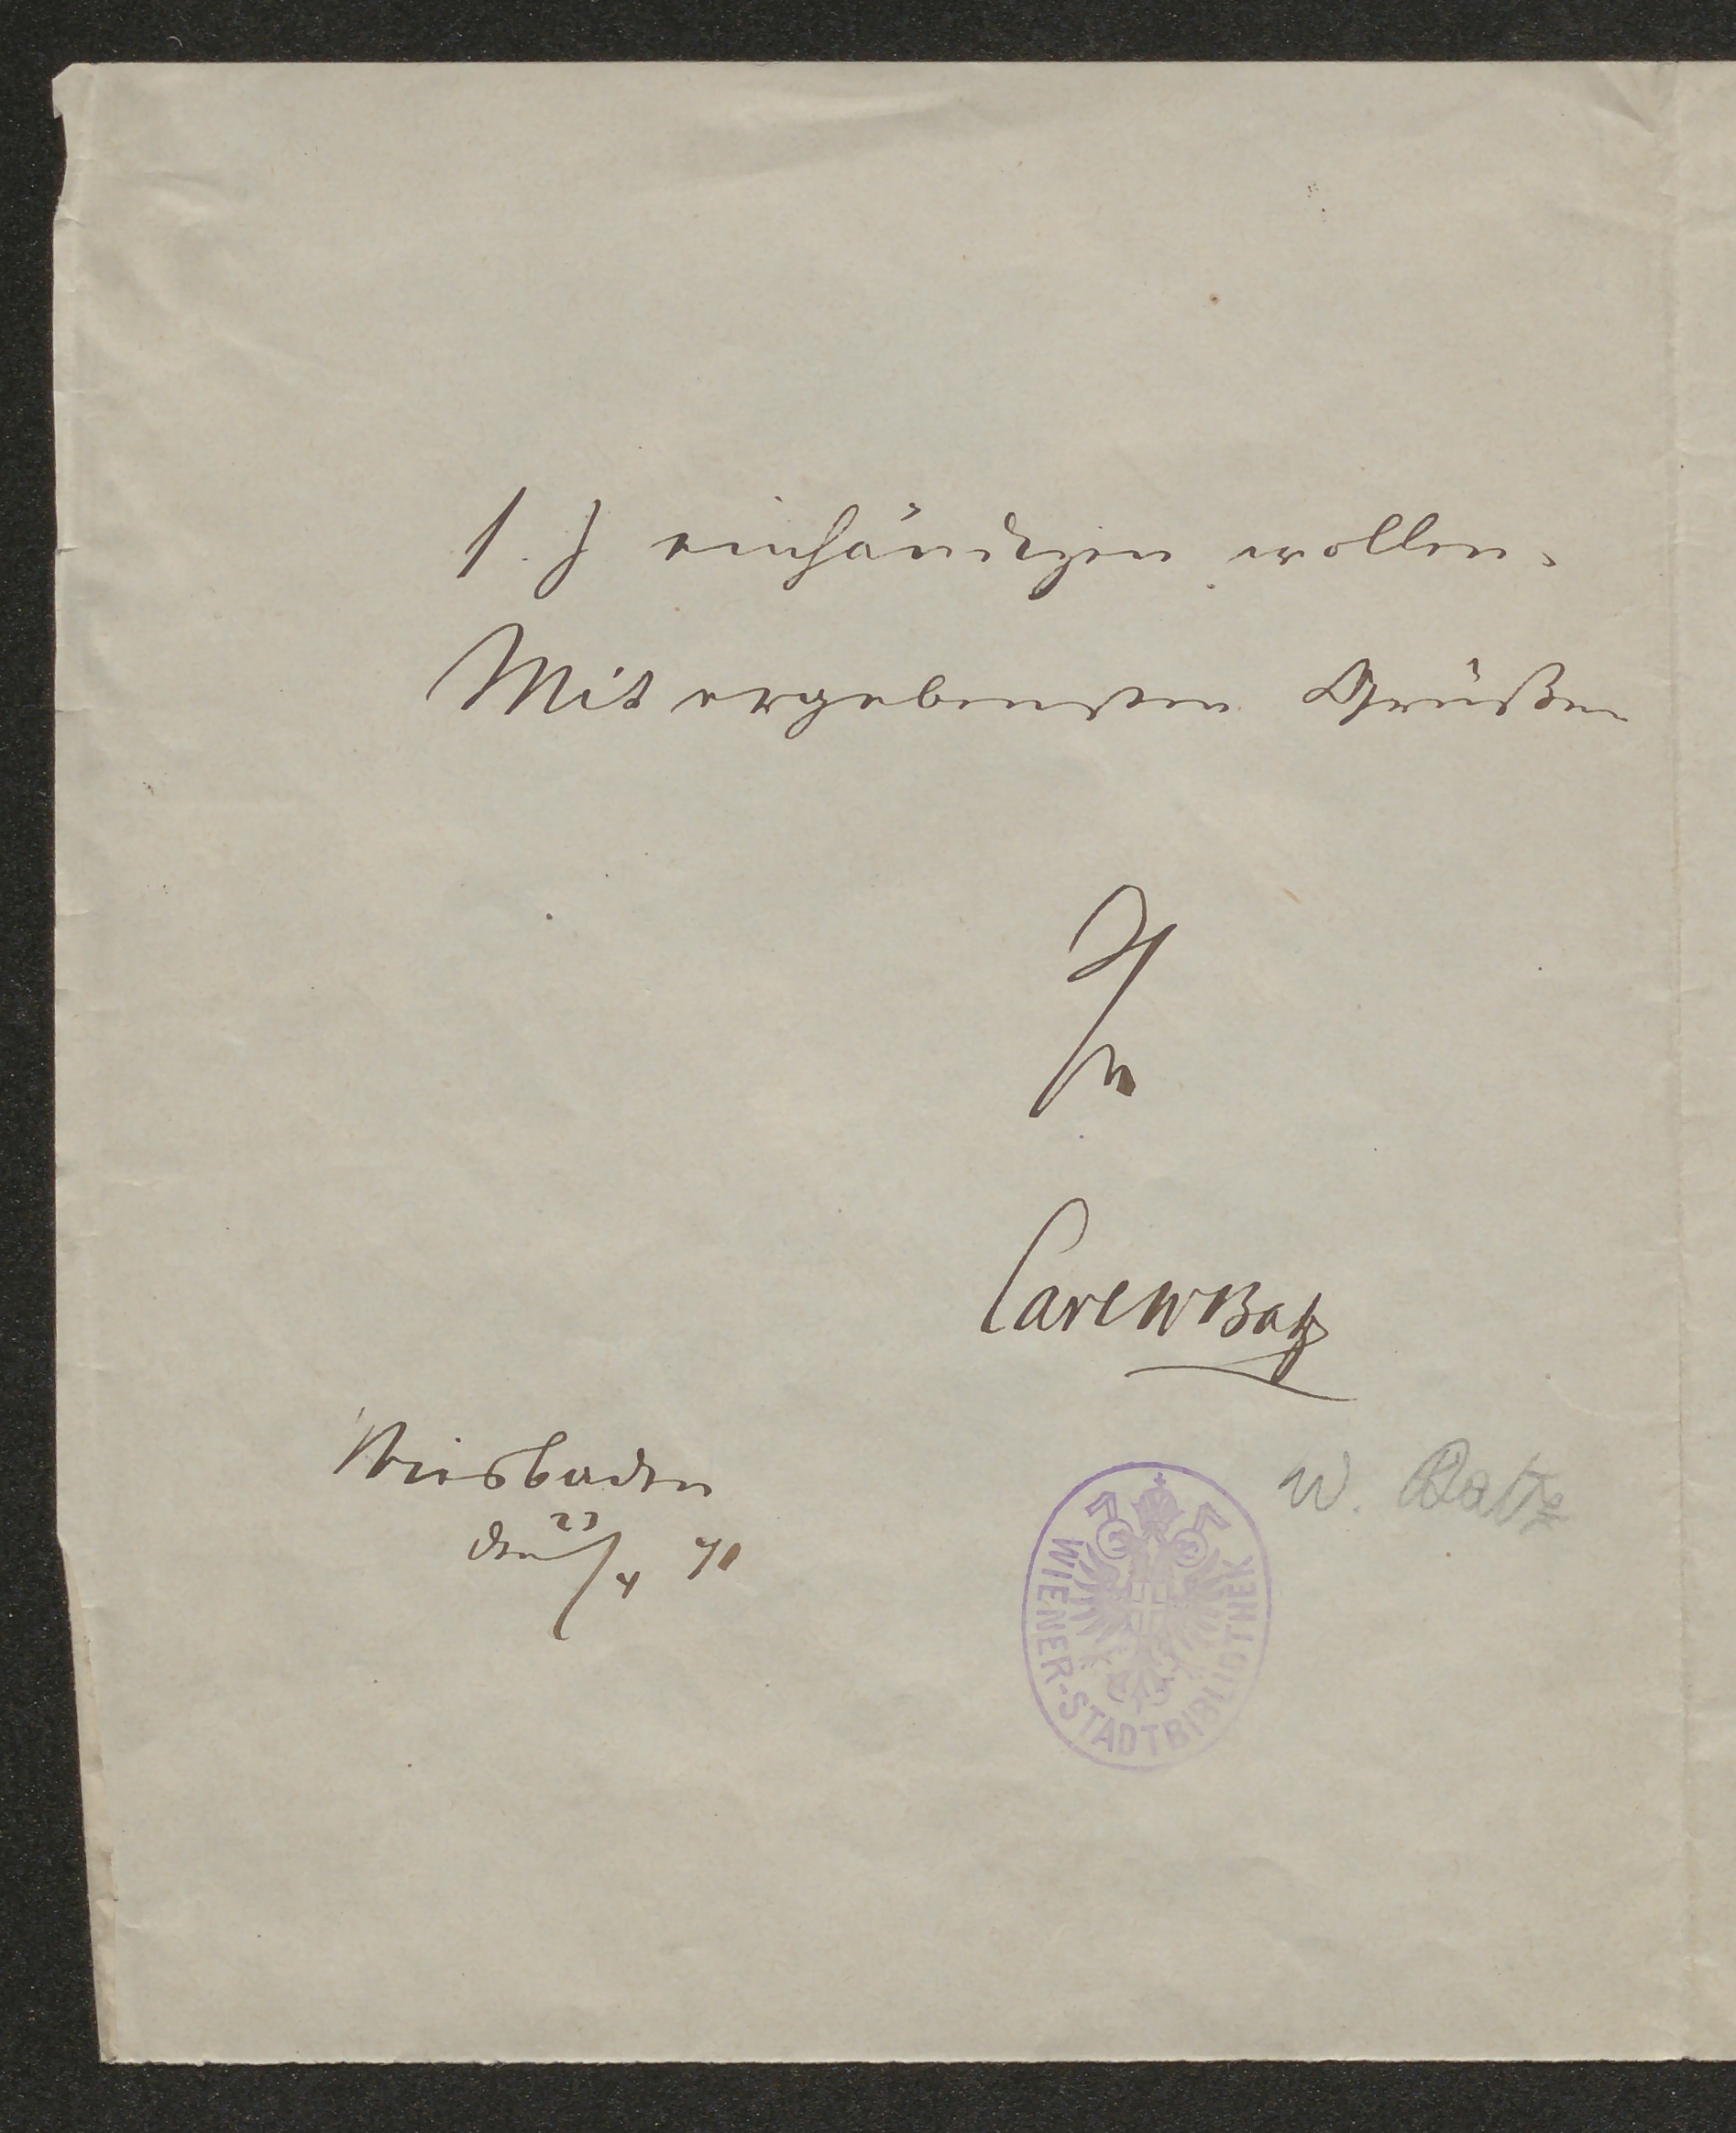 einhändigen wollen.
Mit ergebensten Grüßen
Ihr
Carl W Batz
W. Batz
Wiesbaden
den 23/4 71
WIENER-STADTBIBLIOTHEK